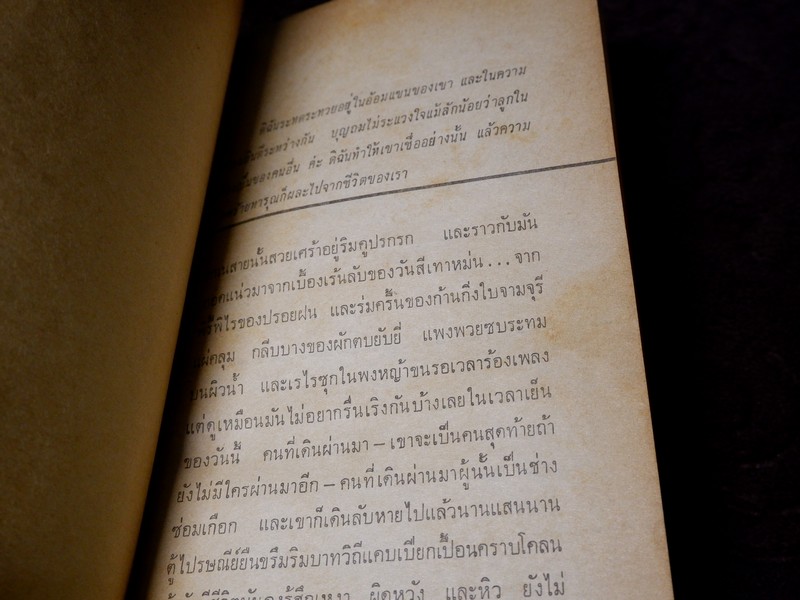 ดิฉันระทดระทวยอยู่ในอ้อมแขนของเขา และในความ
ระหว่างกัน บุญถมไม่ระแวงใจแม้สักน้อยว่าลูกใน
ของคนอื่น ค่ะ ดิฉันทำให้เขาเชื่ออย่างนั้น แล้วความ
ทารุณก็ผละไปจากชีวิตของเรา
สายนั้นสวยเศร้าอยู่ริมคูปรกรก และราวกับมัน
แน่วมาจากเบื้องเร้นลับของวันสีเทาหม่น...จาก
พิไรของปรอยฝน และร่มครึ้นของก้านกิ่งใบจามจุรี
คลุม กลีบบางของผักตบยับยี่ แพงพวยซบระทม
บนผิวน้ำ และเรไรซุกในพงหญ้าขนรอเวลาร้องเพลง
แต่ดูเหมือนมันไม่อยากรื่นเริงกันบ้างเลยในเวลาเย็น
ของวันนี้ คนที่เดินผ่านมา – เขาจะเป็นคนสุดท้ายถ้า
ยังไม่มีใครผ่านมาอีก – คนที่เดินผ่านมาผู้นั้นเป็นช่าง
ซ่อมเกือก และเขาก็เดินลับหายไปแล้วนานแสนนาน
ตู้ไปรษณีย์ยืนขรึมริมบาทวิถีแคบเปียกเปื้อนคราบโคลน
รู้สึกเหงา ผิดหวัง และหิว ยังไม่